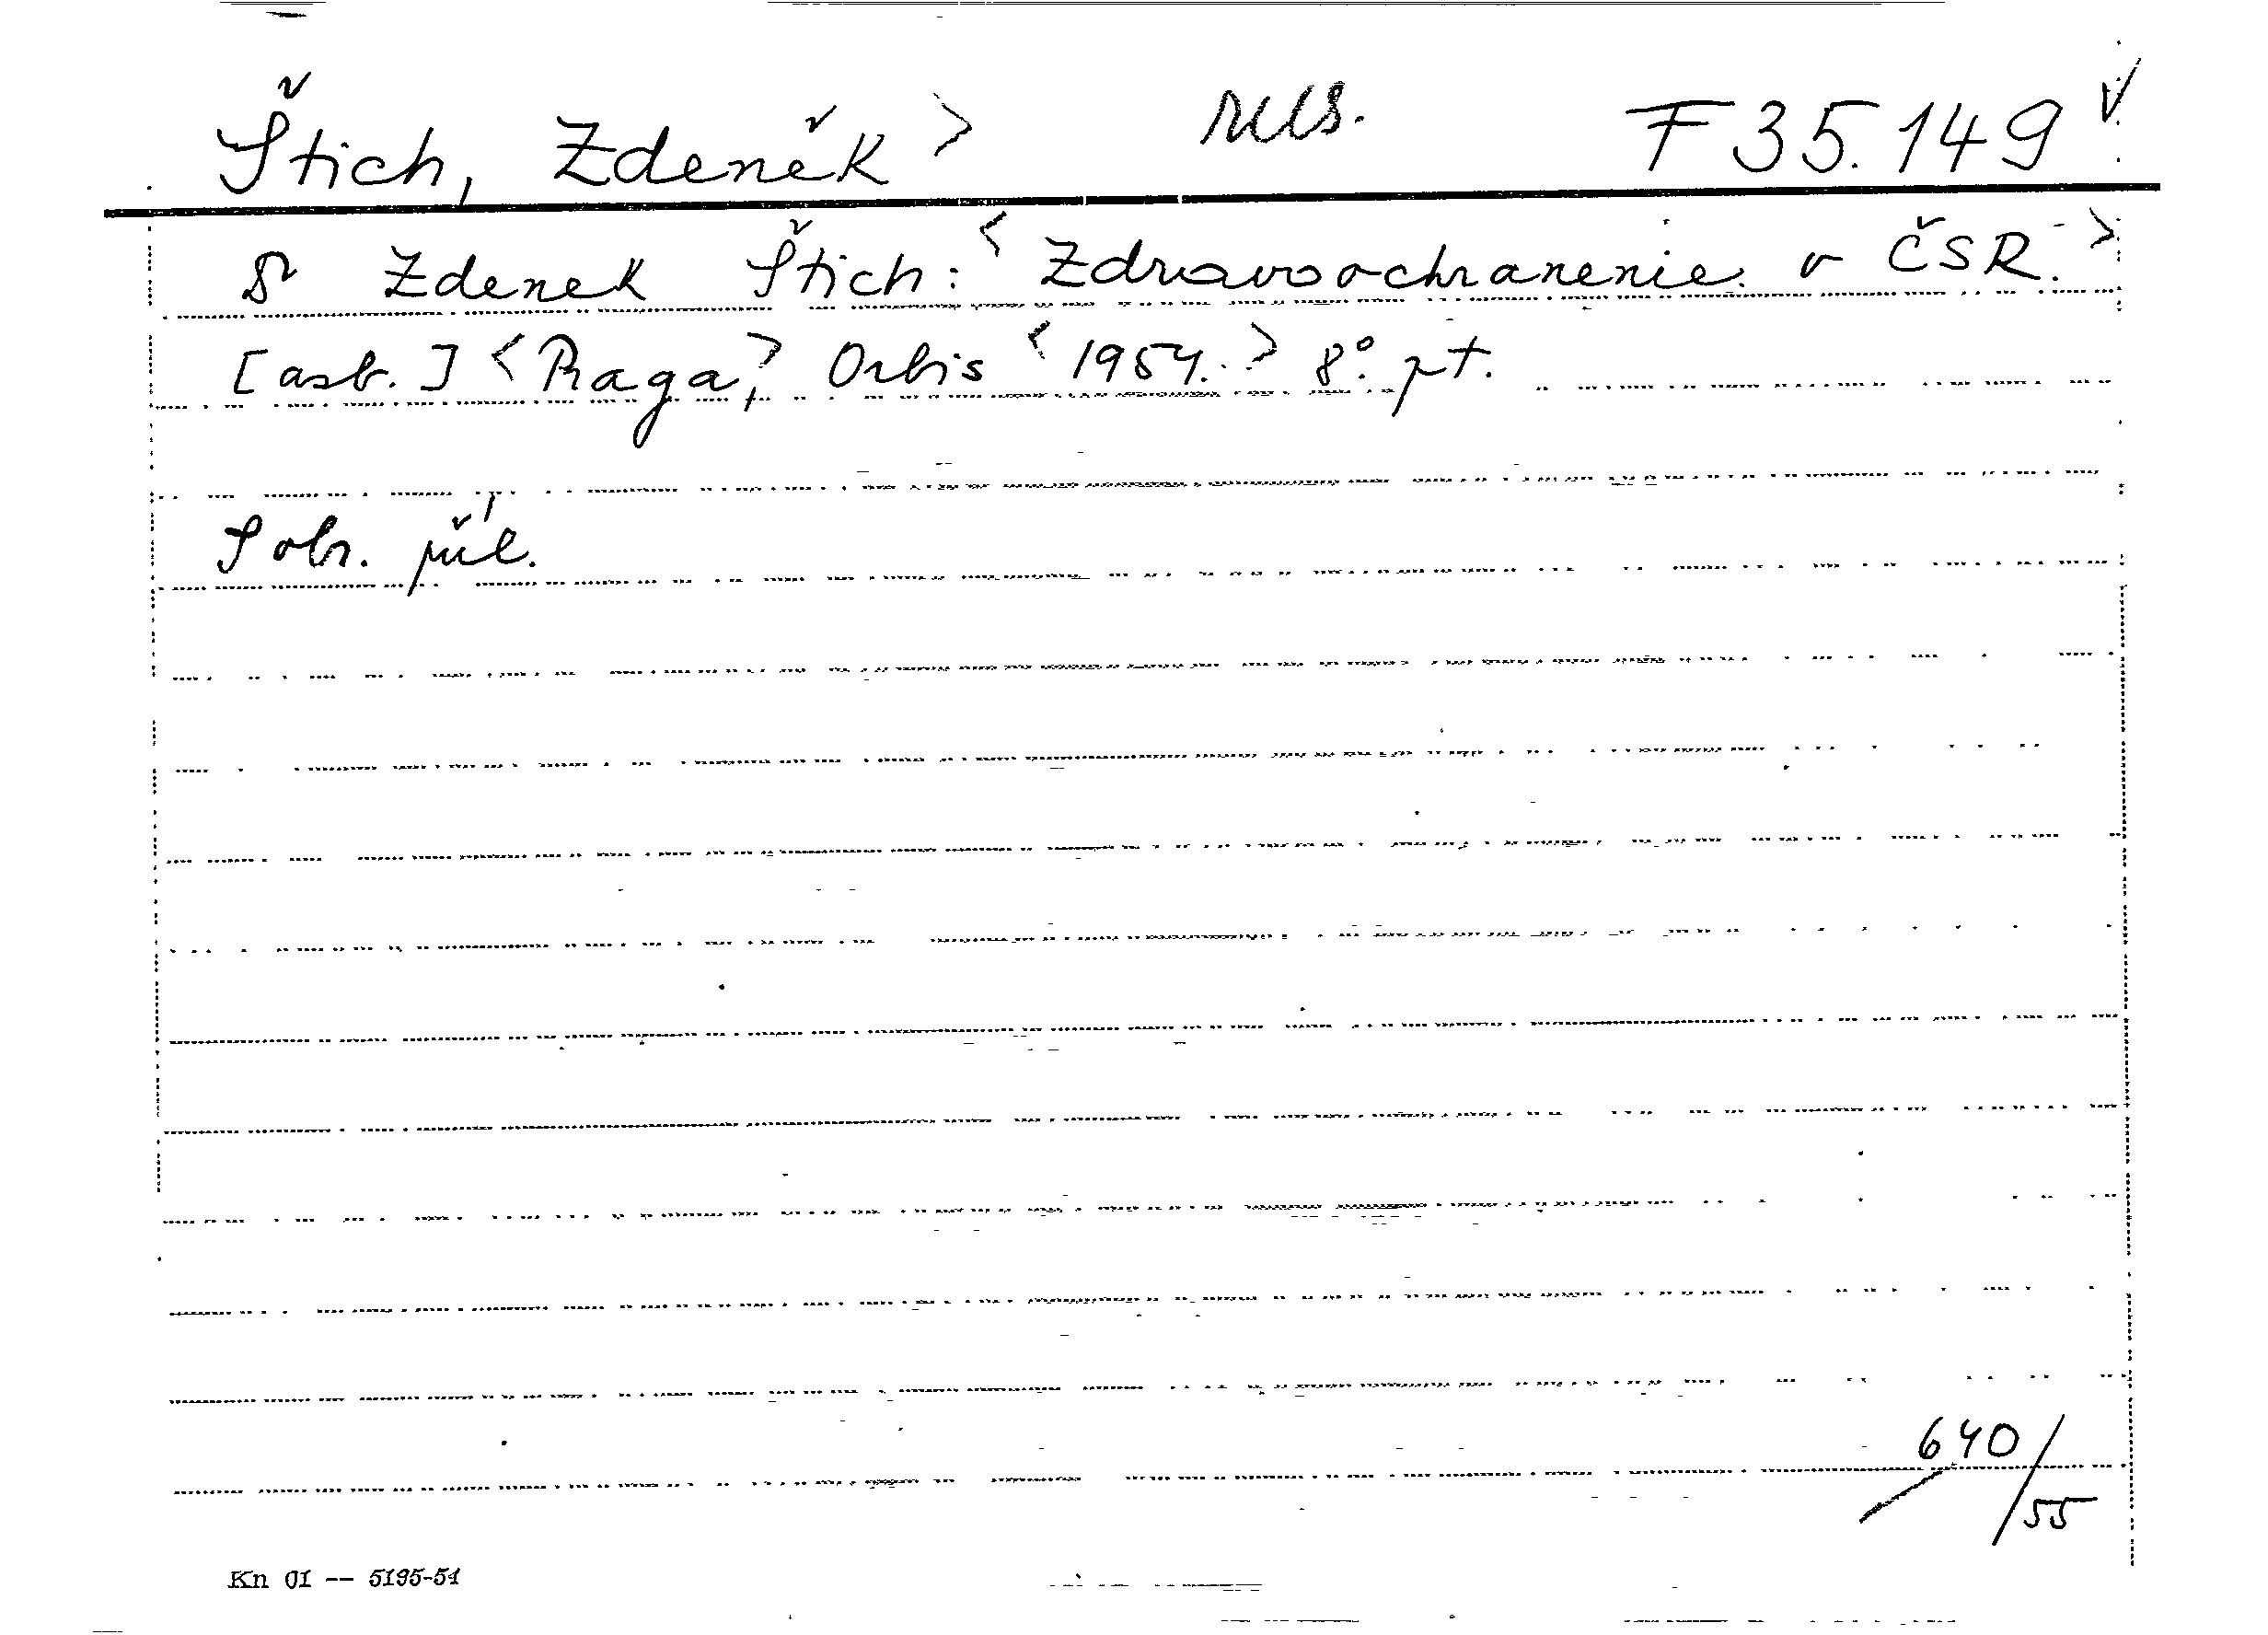 Štich, Zdeněk > rus. F 35.149
Zdenek Štich: < Zdravoochranenie v ČSR. >
[asb.] < Praga, > Orbis < 1954. > 8°. pt.
S obr. příl.
640/55
Kn 01 -- 5195-51